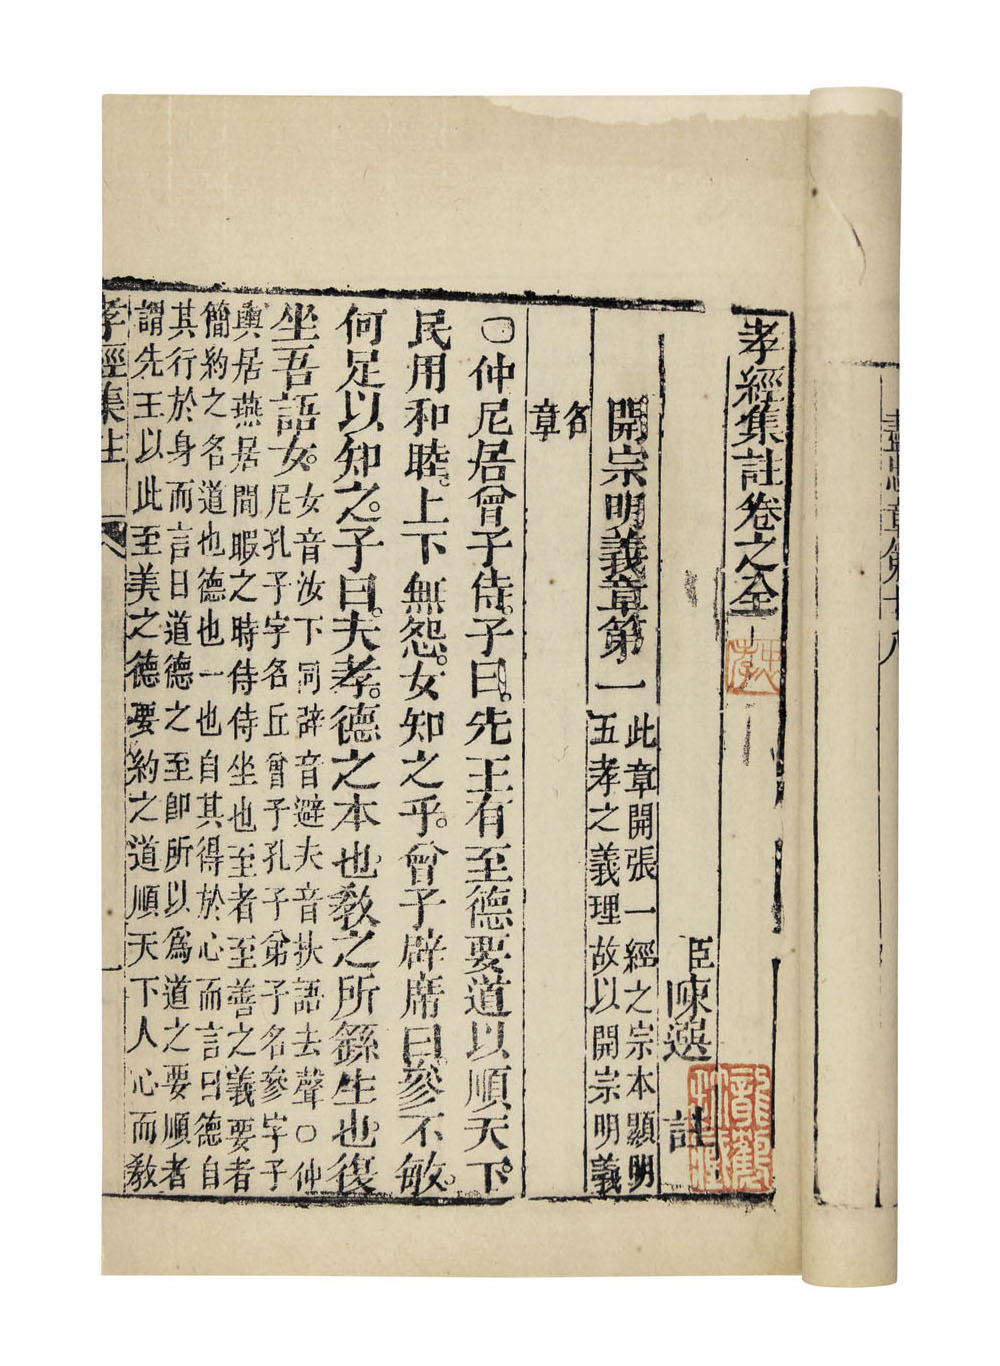 章第十八
孝經集註卷之全
臣陳選 註
開宗明義章第一
此章開張一經之宗本顯明
五孝之義理故以開宗明義
名
章
〇仲尼居。曾子侍。子曰。先王有至德要道以順天下。
民用和睦。上下無怨。女知之乎。曾子辟席曰。參不敏。
何足以知之。子曰。夫孝。德之本也。教之所繇生也。復
坐吾語女。
女音汝下同辟音避夫音扶語去聲〇仲
尼孔子字名丘曾子孔子弟子名參字子
輿居燕居間暇之時侍侍坐也至者至善之義要者
簡約之名道也德也一也自其得於心而言曰德自
其行於身而言曰道德之至即所以為道之要順者
謂先王以此至美之德要約之道順天下人心而教
孝經集註
一